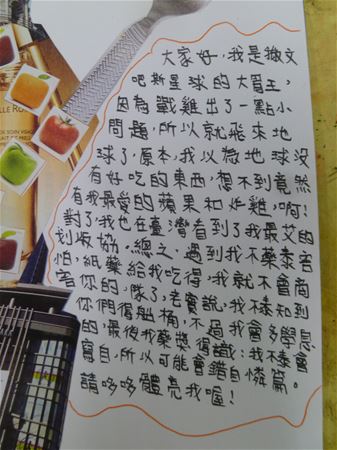 大家好,我是文
吧斯星球的大眉王,
因為戰雞出了一點小
問題,所以就飛來地
球了,原本,我以為地球沒
有好吃的東西,想不到竟然
有我最愛的蘋果和炸雞,啊!
對了,我也在臺灣看到了我最艾的
划板協。總之,遇到我不藥泰害
怕,紙藥給我吃得,我就不會商
害你的。隊了,老實說,我不泰知到
你們復桶,不過我會多學息
的,最後我藥獎得識:我不泰會
寫自,所以可能會錯自憐篇。
請哆哆體亮我喔!